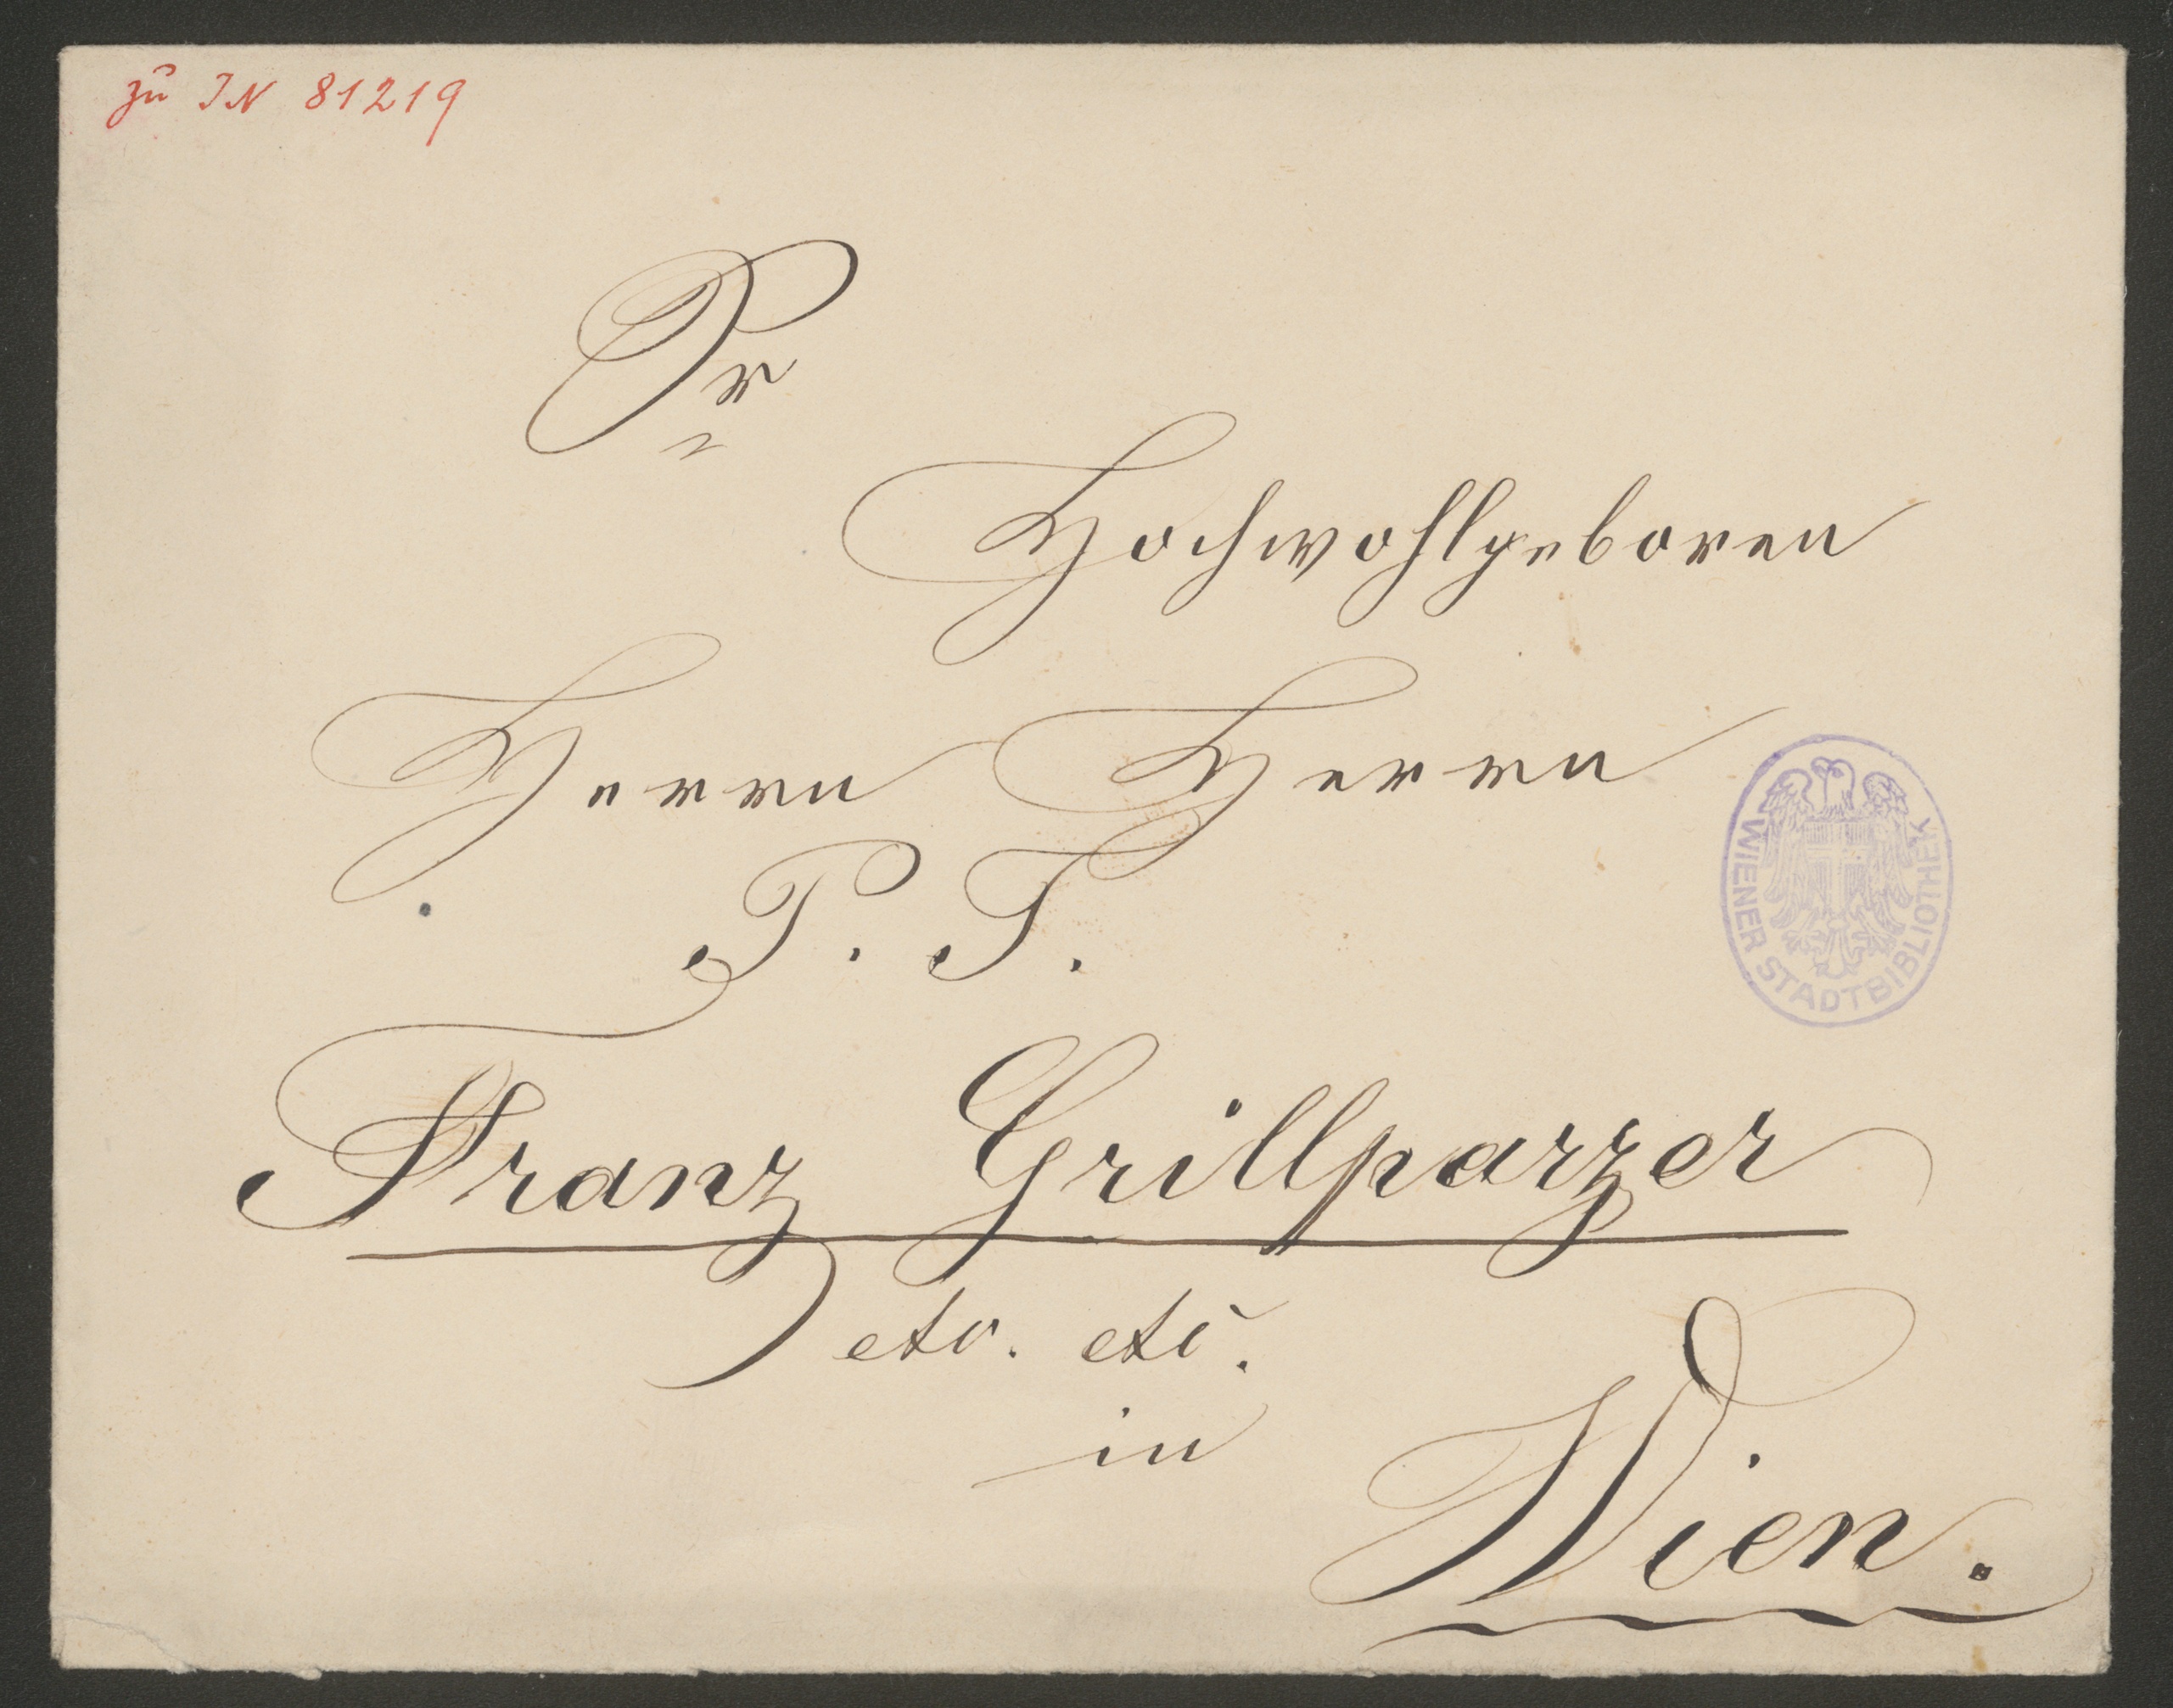 zu IN 81219
Sr
Hochwohlgeboren
Herrn Herrn
P. T.
WIENER STADTBIBLIOTHEK
Franz Grillparzer
etc. etc.
in
Wien.